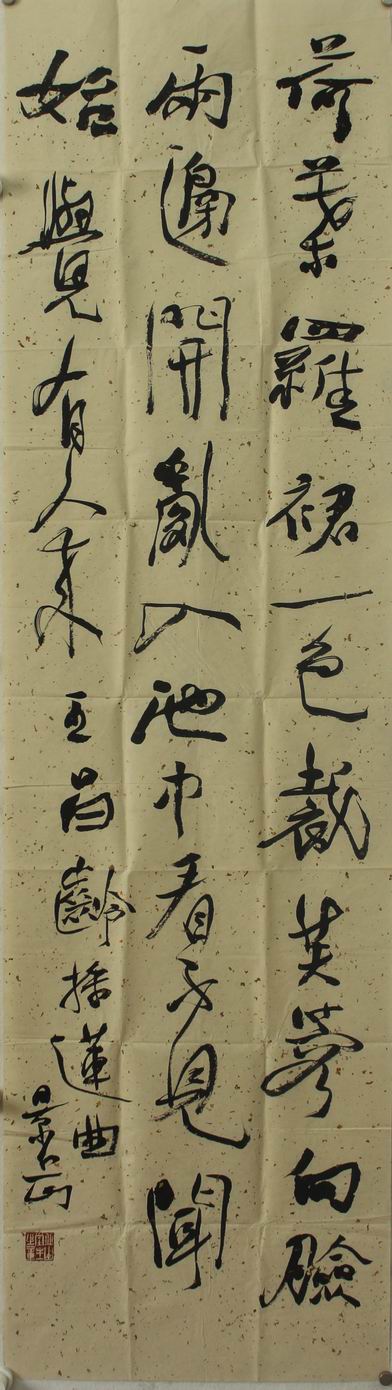 荷葉羅裙一色裁芙蓉向臉
兩邊開亂入池中看不見聞
始覺有人來王昌齡採蓮曲
景